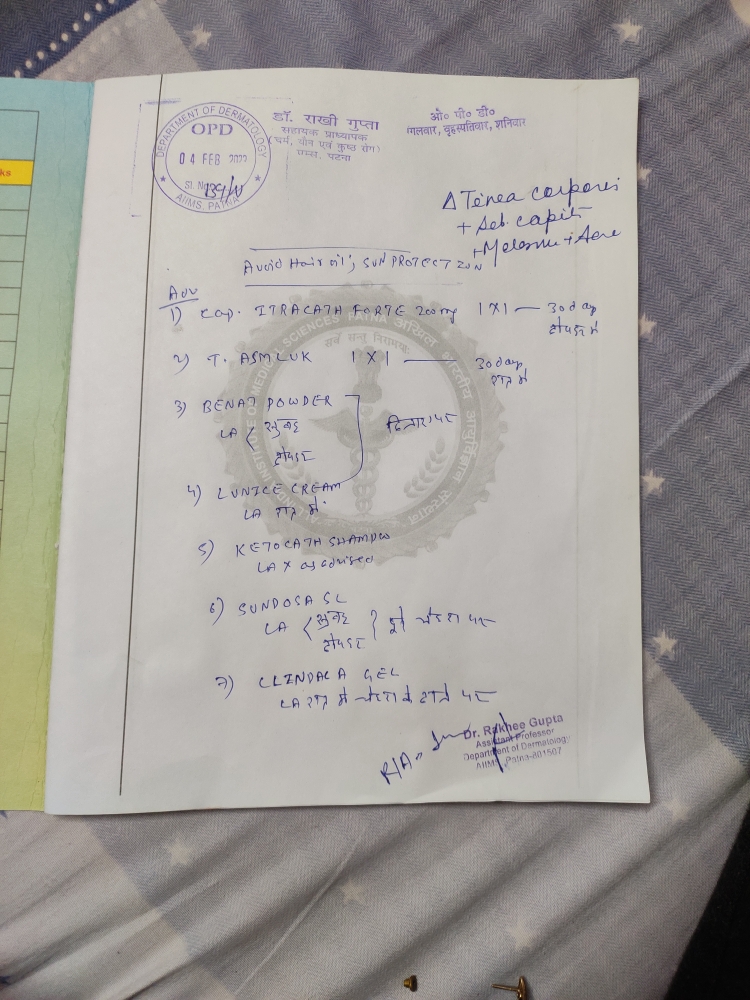 DEPARTMENT OF DERMATOLOGY
OPD
04 FEB 2022
Sl. No. 139/N
AIIMS, PATNA
डॉ. राखी गुप्ता
सहायक प्राध्यापक
(चर्म, यौन एवं कुष्ठ रोग)
एम्स, पटना
ओ० पी० डी०
मंगलवार, वृहस्पतिवार, शनिवार
Δ Tinea corporis
+ Seb. capitis
+ Melasma + Acne
Avoid Hair oil, SUN PROTECTION
Adv
1) Cap. ITRACATH FORTE 200mg 1X1 — 30 day
दोपहर में
2) T. ASMLUK 1X1 — 30 day
रात में
3) BENAT POWDER
LA सुबह
दोपहर
4) LUNICE CREAM
LA रात में
5) KETOCATH SHAMPOO
LA X as advised
6) SUNDOSA SL
LA सुबह दोपहर पूरे चेहरा पर
7) CLINDACA GEL
LA रात में चेहरा के दाने पर
Dr. Rakhee Gupta
Assistant Professor
Department of Dermatology
AIIMS, Patna-801507
ks
ALL INDIA INSTITUTE OF MEDICAL SCIENCES PATNA
अखिल भारतीय आयुर्विज्ञान संस्थान
सर्वे सन्तु निरामयाः